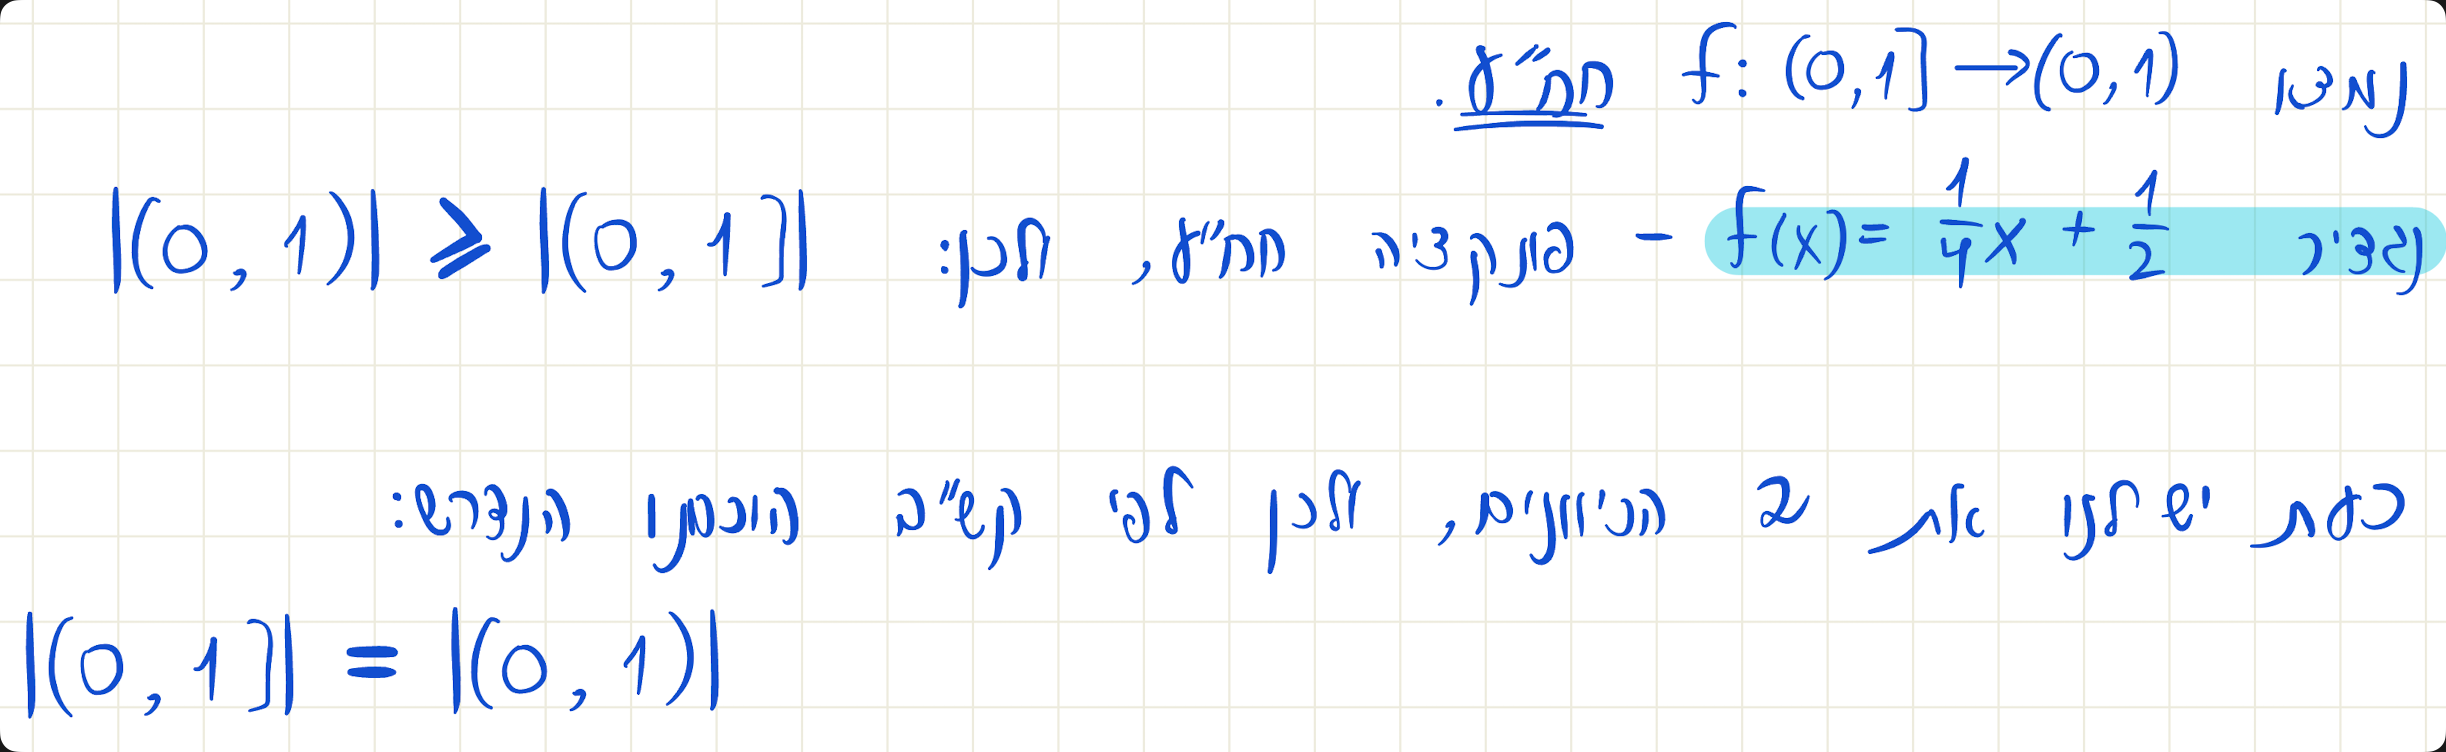 נמצא f: (0,1] → (0,1) חח"ע.
נגדיר f(x) = 1/4 x + 1/2 - פונקציה חח"ע, ולכן: |(0,1)| ⩾ |(0,1]|
כעת יש לנו את 2 הכיוונים, ולכן לפי קש"ב הוכחנו הנדרש:
|(0,1]| = |(0,1)|